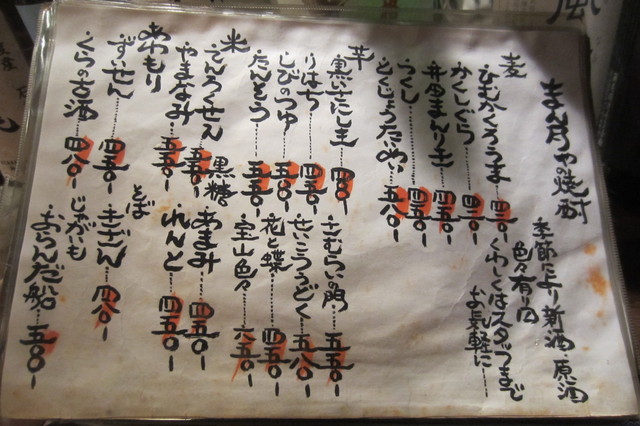 まんまやの焼酎
季節により新酒・原酒
色々有り〼
くわしくはスタッフまで
お気軽に
麦
ひむかくろうま 四三〇-
かくしぐら 四三〇-
井田まんりょ 四五〇-
つくし 四五〇-
とくじょうたい 五八〇-
芋
黒いさにしき 四〇〇-
りはち 四五〇-
しびのつゆ 五〇〇-
たんそう 五五〇-
さむらいの門 五五〇-
せいこううどく 五八〇-
花と蝶 四五〇-
宝山色々 六五〇-
米
さんろくせん 五五〇-
やまなみ 五五〇-
黒糖
あまみ 四五〇-
れんと 四五〇-
あわもり
ずいせん 四五〇-
くらの古酒 四八〇-
そば
さだん 四八〇-
じゃがいも
おらんだ船 五〇〇-